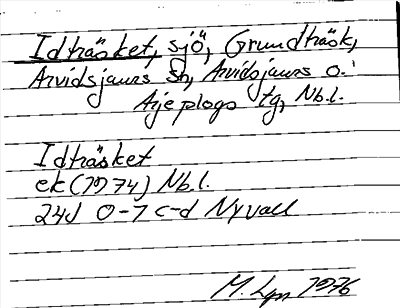 Idträsket, sjö, Grundträsk,
Arvidsjaurs sn, Arvidsjaurs o.
Arjeplogs tg, Nb.l.
Idträsket
ek (1974) Nb.l.
24J 0-1 c-d Nyvall
M. Lyn 1976